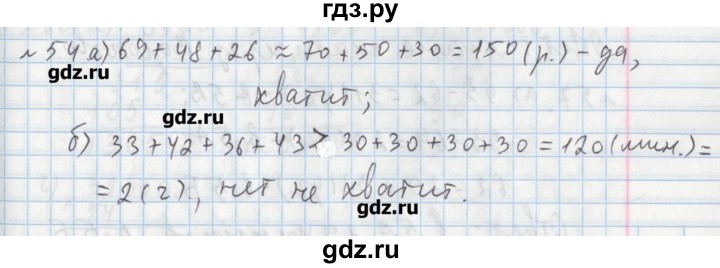 гдз.ру
№ 54 а) 69 + 48 + 26 ≈ 70 + 50 + 30 = 150 (р.) - да,
gdz.ru
gdz.ru
хватит;
gdz.ru
б) 33 + 42 + 36 + 43 > 30 + 30 + 30 + 30 = 120 (мин.) =
= 2 (ч), нет не хватит.
gdz.ru
gdz.ru